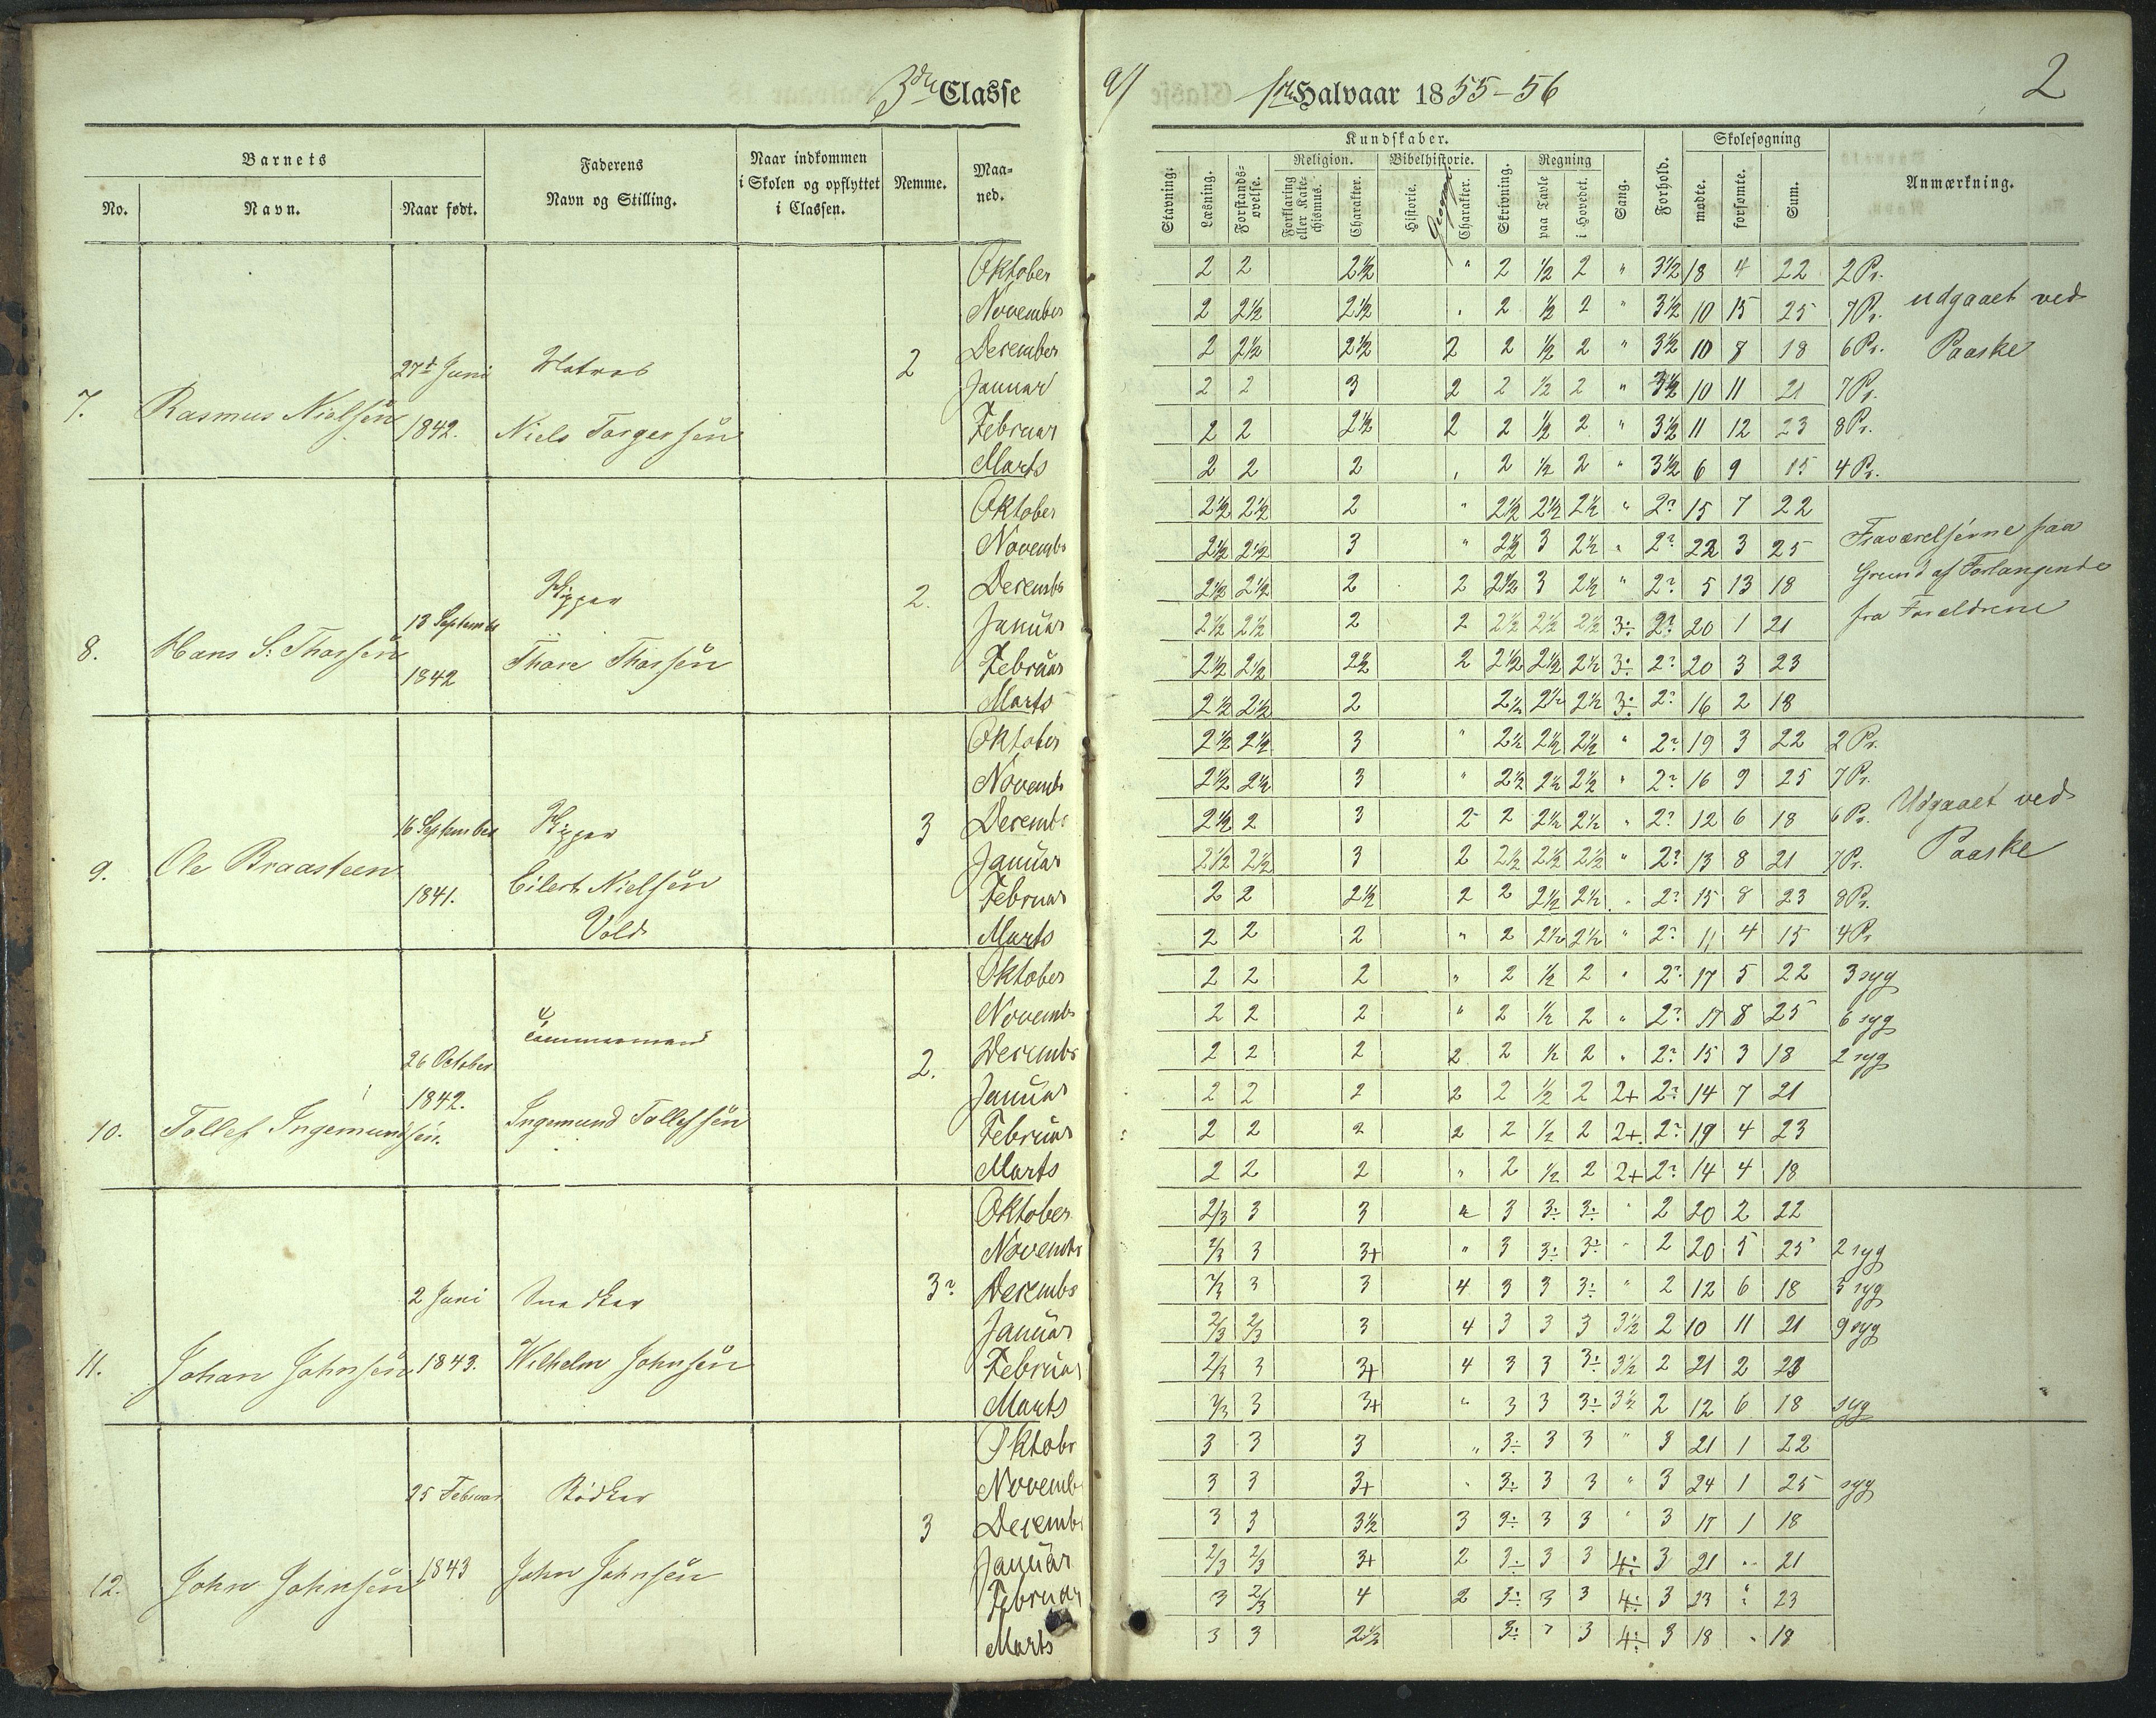 3die Classe
a/ 1ste Halvaar 1855-56 2
Barnets
No. Navn. Naar født.
Faderens Navn og Stilling.
Naar indkommen i Skolen og opflyttet i Classen.
Nemme.
Maaned.
Kundskaber.
Stavning. Læsning. Forstandsøvelse.
Religion. Forklaring eller Katechismus. Charakter.
Bibelhistorie. Historie. Charakter.
Skrivning.
Regning paa Tavle i Hovedet.
Sang.
Forhold.
Skolesøgning mødte. forsømte. Sum.
Anmærkning.
7. Rasmus Nielsen 27de Juni 1842. Matros Niels Torgersen 2
Oktober 2 2 2½ " 2 ½ 2 " 3½ 18 4 22 2 Pr.
November 2 2½ 2½ " 2 ½ 2 " 3½ 10 15 25 7 Pr. udgaaet ved
December 2 2½ 2½ 2 2 ½ 2 " 3½ 10 8 18 6 Pr. Paaske
Januar 2 2 3 2 2 ½ 2 " 3½ 10 11 21 7 Pr.
Februar 2 2 2½ 2 2 ½ 2 " 3½ 11 12 23 8 Pr.
Marts 2 2 2 " 2 ½ 2 " 3½ 6 9 15 4 Pr.
8. Hans S. Thorsen 13 Septembr 1842 Thore Thorsen 2.
Oktober 2½ 2½ 2 " 2½ 2½ 2½ " 2? 15 7 22
Novembr 2½ 2½ 3 " 2½ 3 2½ " 2? 22 3 25 Fraværelserne paa
Decembr 2½ 2½ 2 2 2½ 3 2½ " 2? 5 13 18 Grund af Forlangende
Januar 2½ 2½ 2 2 2½ 2½ 2½ 3÷ 2? 20 1 21 fra Forældrene
Februar 2½ 2½ 2½ 2 2½ 2½ 2½ 3÷ 2? 20 3 23
Marts 2½ 2½ 2 2½ 2½ 2½ 3÷ 2? 16 2 18
9. Ole Braasteen 16 September 1841. Eilert Nielsen Vold 3
Oktober 2½ 2½ 3 " 2½ 2½ 2½ " 2? 19 3 22 2 Pr.
Novembr 2½ 2½ 3 " 2½ 2½ 2½ " 2? 16 9 25 7 Pr.
Decembr 2½ 2 3 2 2 2½ 2½ " 2? 12 6 18 6 Pr. Udgaaet ved
Januar 2½ 2½ 3 2 2½ 2½ 2½ " 2? 13 8 21 7 Pr. Paaske
Februar 2 2 2½ 2 2 2½ 2½ " 2? 15 8 23 8 Pr.
Marts 2 2 2 " 2 2½ 2½ " 2? 11 4 15 4 Pr
10. Tollef Ingemundsen. 26 October 1842. Tømmermand Ingemund Tollefsen 2.
Oktober 2 2 2 " 2 ½ 2 " 2? 17 5 22 3 syg
Novembr 2 2 2 " 2 ½ 2 " 2? 17 8 25 6 syg
Decembr 2 2 2 2 2 ½ 2 " 2? 15 3 18 2 syg
Januar 2 2 2 2 2 ½ 2 2+ 2? 14 7 21
Februar 2 2 2 2 2 ½ 2 2+ 2? 19 4 23
Marts 2 2 2 " 2 ½ 2 2+ 2? 14 4 18
11. Johan Johnsen 2 Juni 1843. Snedker Wilhelm Johnsen 3?
Oktober 2/3 3 3 " 3 3÷ 3÷ " 2 20 2 22
Novembr 2/3 3 3+ " 3 3÷ 3÷ " 2 20 5 25 2 syg
Decembr 2/3 3 3 4 3 3 3÷ " 2 12 6 18 5 syg
Januar 2/3 2/3 3 4 3 3 3 3½ 2 10 11 21 9 syg
Februar 2/3 3 3+ 4 3 3 3÷ 3½ 2 21 2 23
Marts 2/3 3 3+ " 3 3 3÷ 3½ 2 12 6 18 syg
12. John Johnsen 25 Februar 1843 Bødker John Johnsen 3
Oktobr 3 3 3 " 3÷ 3 3 " 3 21 1 22
Novembr 3 3 3+ " 3÷ 3 3 " 3 24 1 25 syg
Decembr 3 3 3½ 3 3÷ 3 3 " 3 17 1 18
Januar 2/3 2/3 3+ 2 3÷ 3 3 4÷ 3 21 " 21
Februar 3 2/3 4 2 3÷ 3 3 4÷ 3 23 " 23
Marts 3 3 2½ 3÷ " 3 4÷ 3 18 " 18